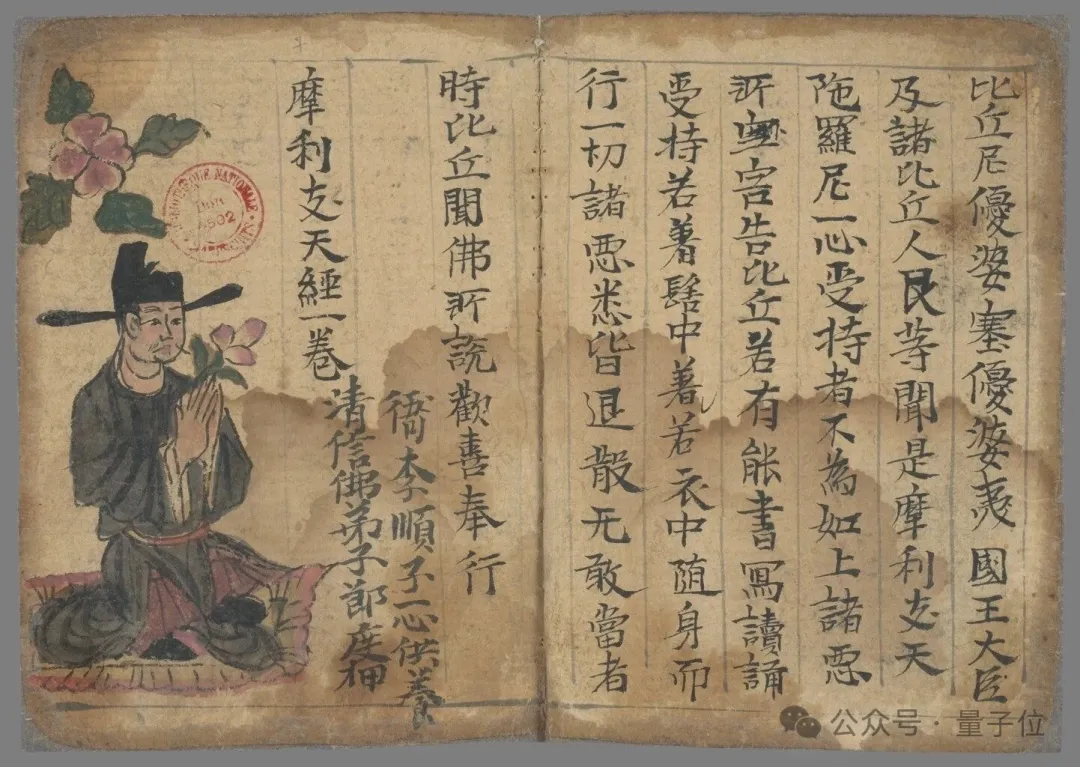 比丘尼優婆塞優婆夷國王大臣
及諸比丘人民等聞是摩利支天
陁羅尼一心受持者不為如上諸惡
所害告比丘若有能書寫讀誦
受持若著髻中著若衣中随身而
行一切諸惡悉皆退散无敢當者
時比丘聞佛所說歡喜奉行
摩利支天經一卷
清信佛弟子節度押
衙李順子一心供養
BIBLIOTHEQUE NATIONALE
公众号·量子位